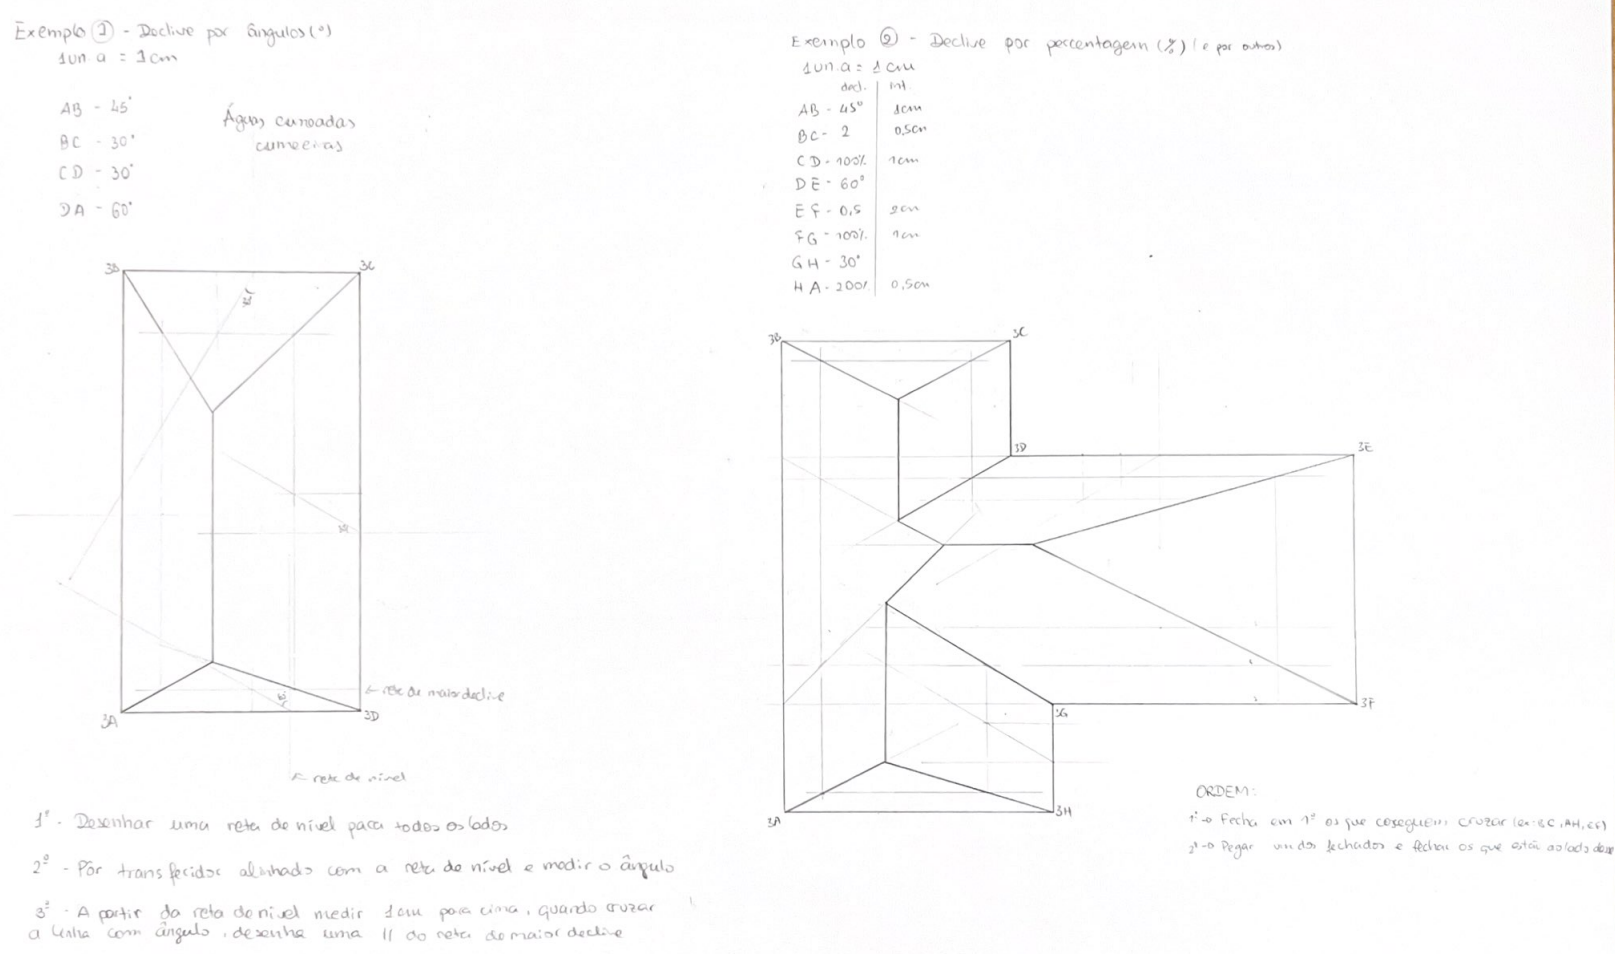 Exemplo ① - Declive por ângulos (°)
1un. a = 1cm
AB - 45°
BC - 30°
CD - 30°
DA - 60°
Águas
cumeeiras
3B
3C
30°
30°
60°
← reta de maior declive
3A
3D
← reta de nível
1º - Desenhar uma reta de nível para todos os lados
2º - Pôr transferidor alinhado com a reta de nível e medir o ângulo
3º - A partir da reta de nivel medir 1cm para cima, quando cruzar
a linha com ângulo, desenha uma // da reta de maior declive
Exemplo ② - Declive por percentagem (%) (e por outros)
1un. a = 1cm
decl. int.
AB - 45° 1cm
BC - 2 0,5cm
CD - 100% 1cm
DE - 60°
EF - 0,5 2cm
FG - 100% 1cm
GH - 30°
HA - 200% 0,5cm
3B
3C
3D
3E
3G
3F
3A
3H
ORDEM:
1º → Fecha em 1º os que coseguem cruzar (ex: BC, AH, EF)
2º → Pegar um dos fechados e fechar os que estão ao lado